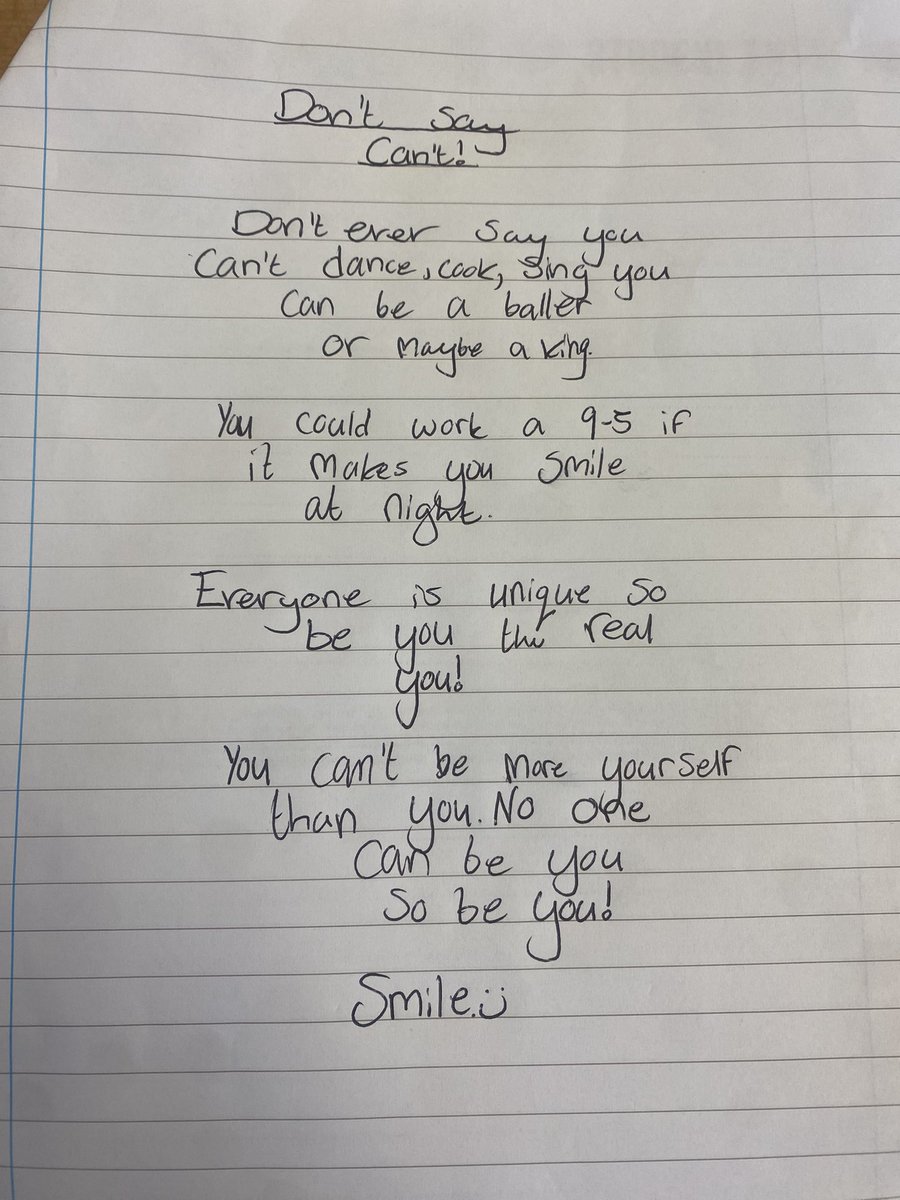 Don't say
Can't!
Don't ever say you
Can't dance, cook, sing you
can be a baller
or maybe a king.
You could work a 9-5 if
it makes you smile
at night.
Everyone is unique so
be you the real
you!
You can't be more yourself
than you. No one
can be you
so be you!
Smile.:)